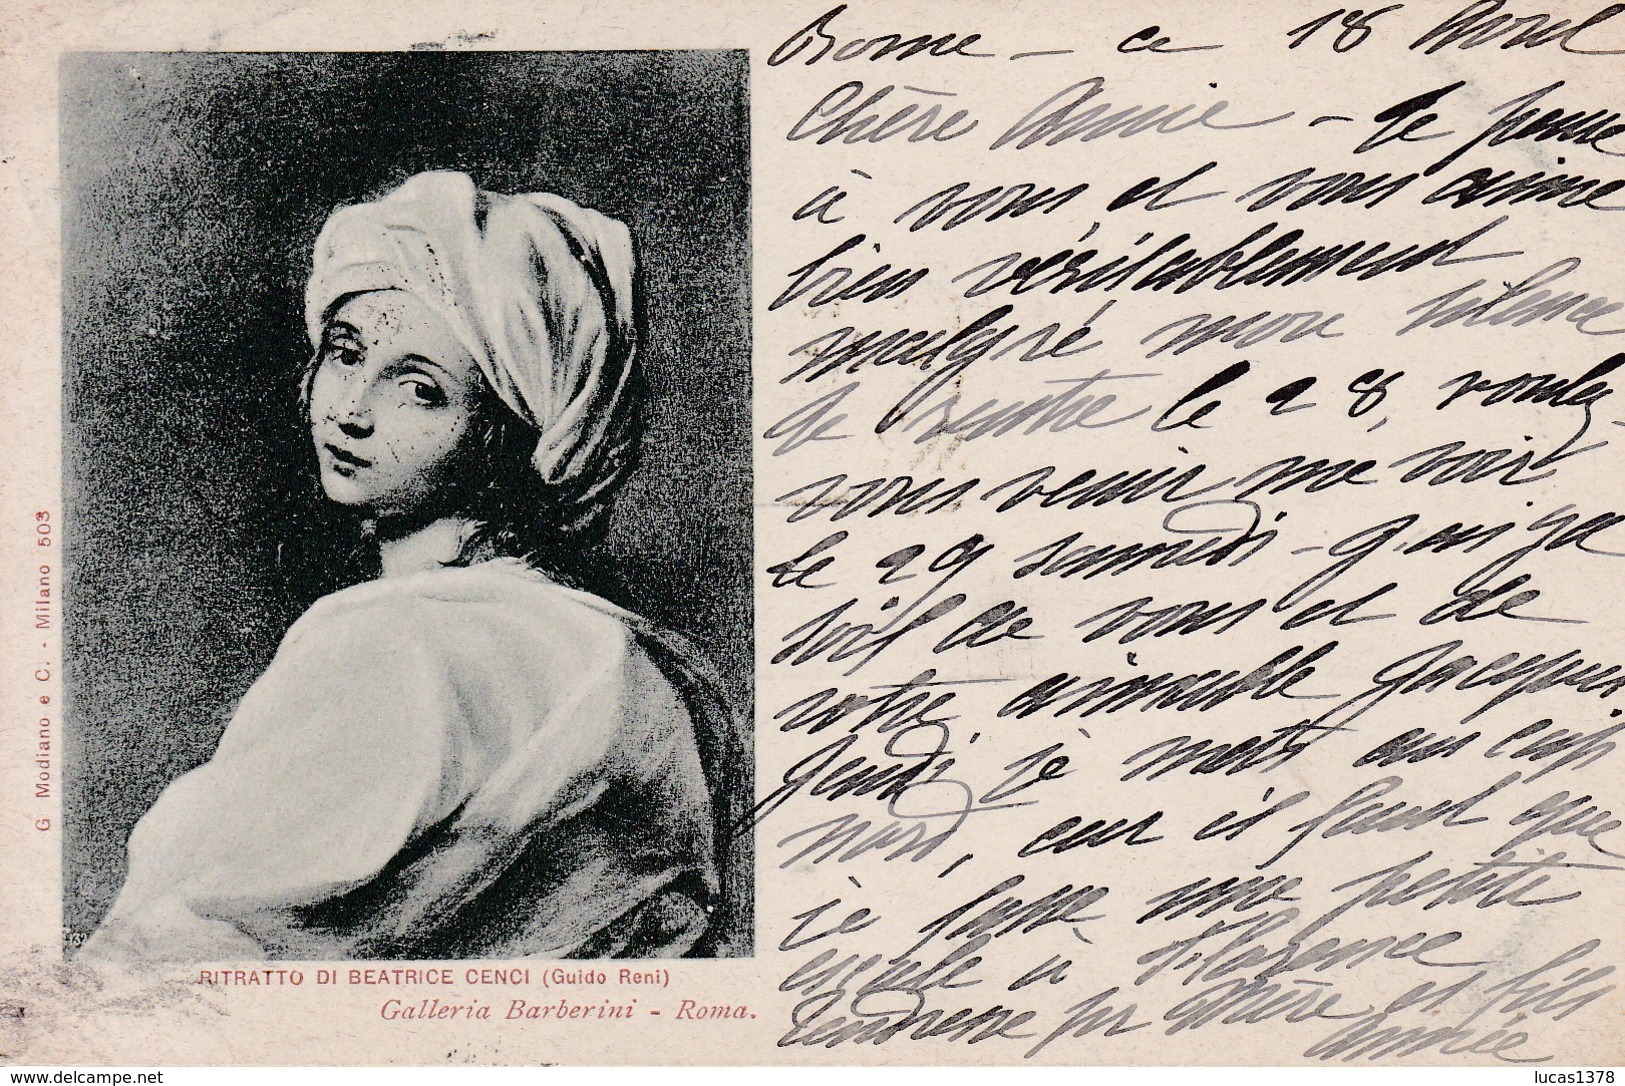 Rome - ce 18 Avril
Chère Annie - Je pense
à vous et vous aime
bien véritablement
malgré mon silence
Je rentre le 28, voulez-
vous venir me voir
le 29 samedi -
soif de vous et de
votre aimable Jacques.
Jeudi je mets au cap
nord, car il faut que
je fasse une petite
escale à Florence
Tendresse pr Mère et fils
Année
G. Modiano e C. - Milano 503
RITRATTO DI BEATRICE CENCI (Guido Reni)
Galleria Barberini - Roma.
www.delcampe.net
lucas1378